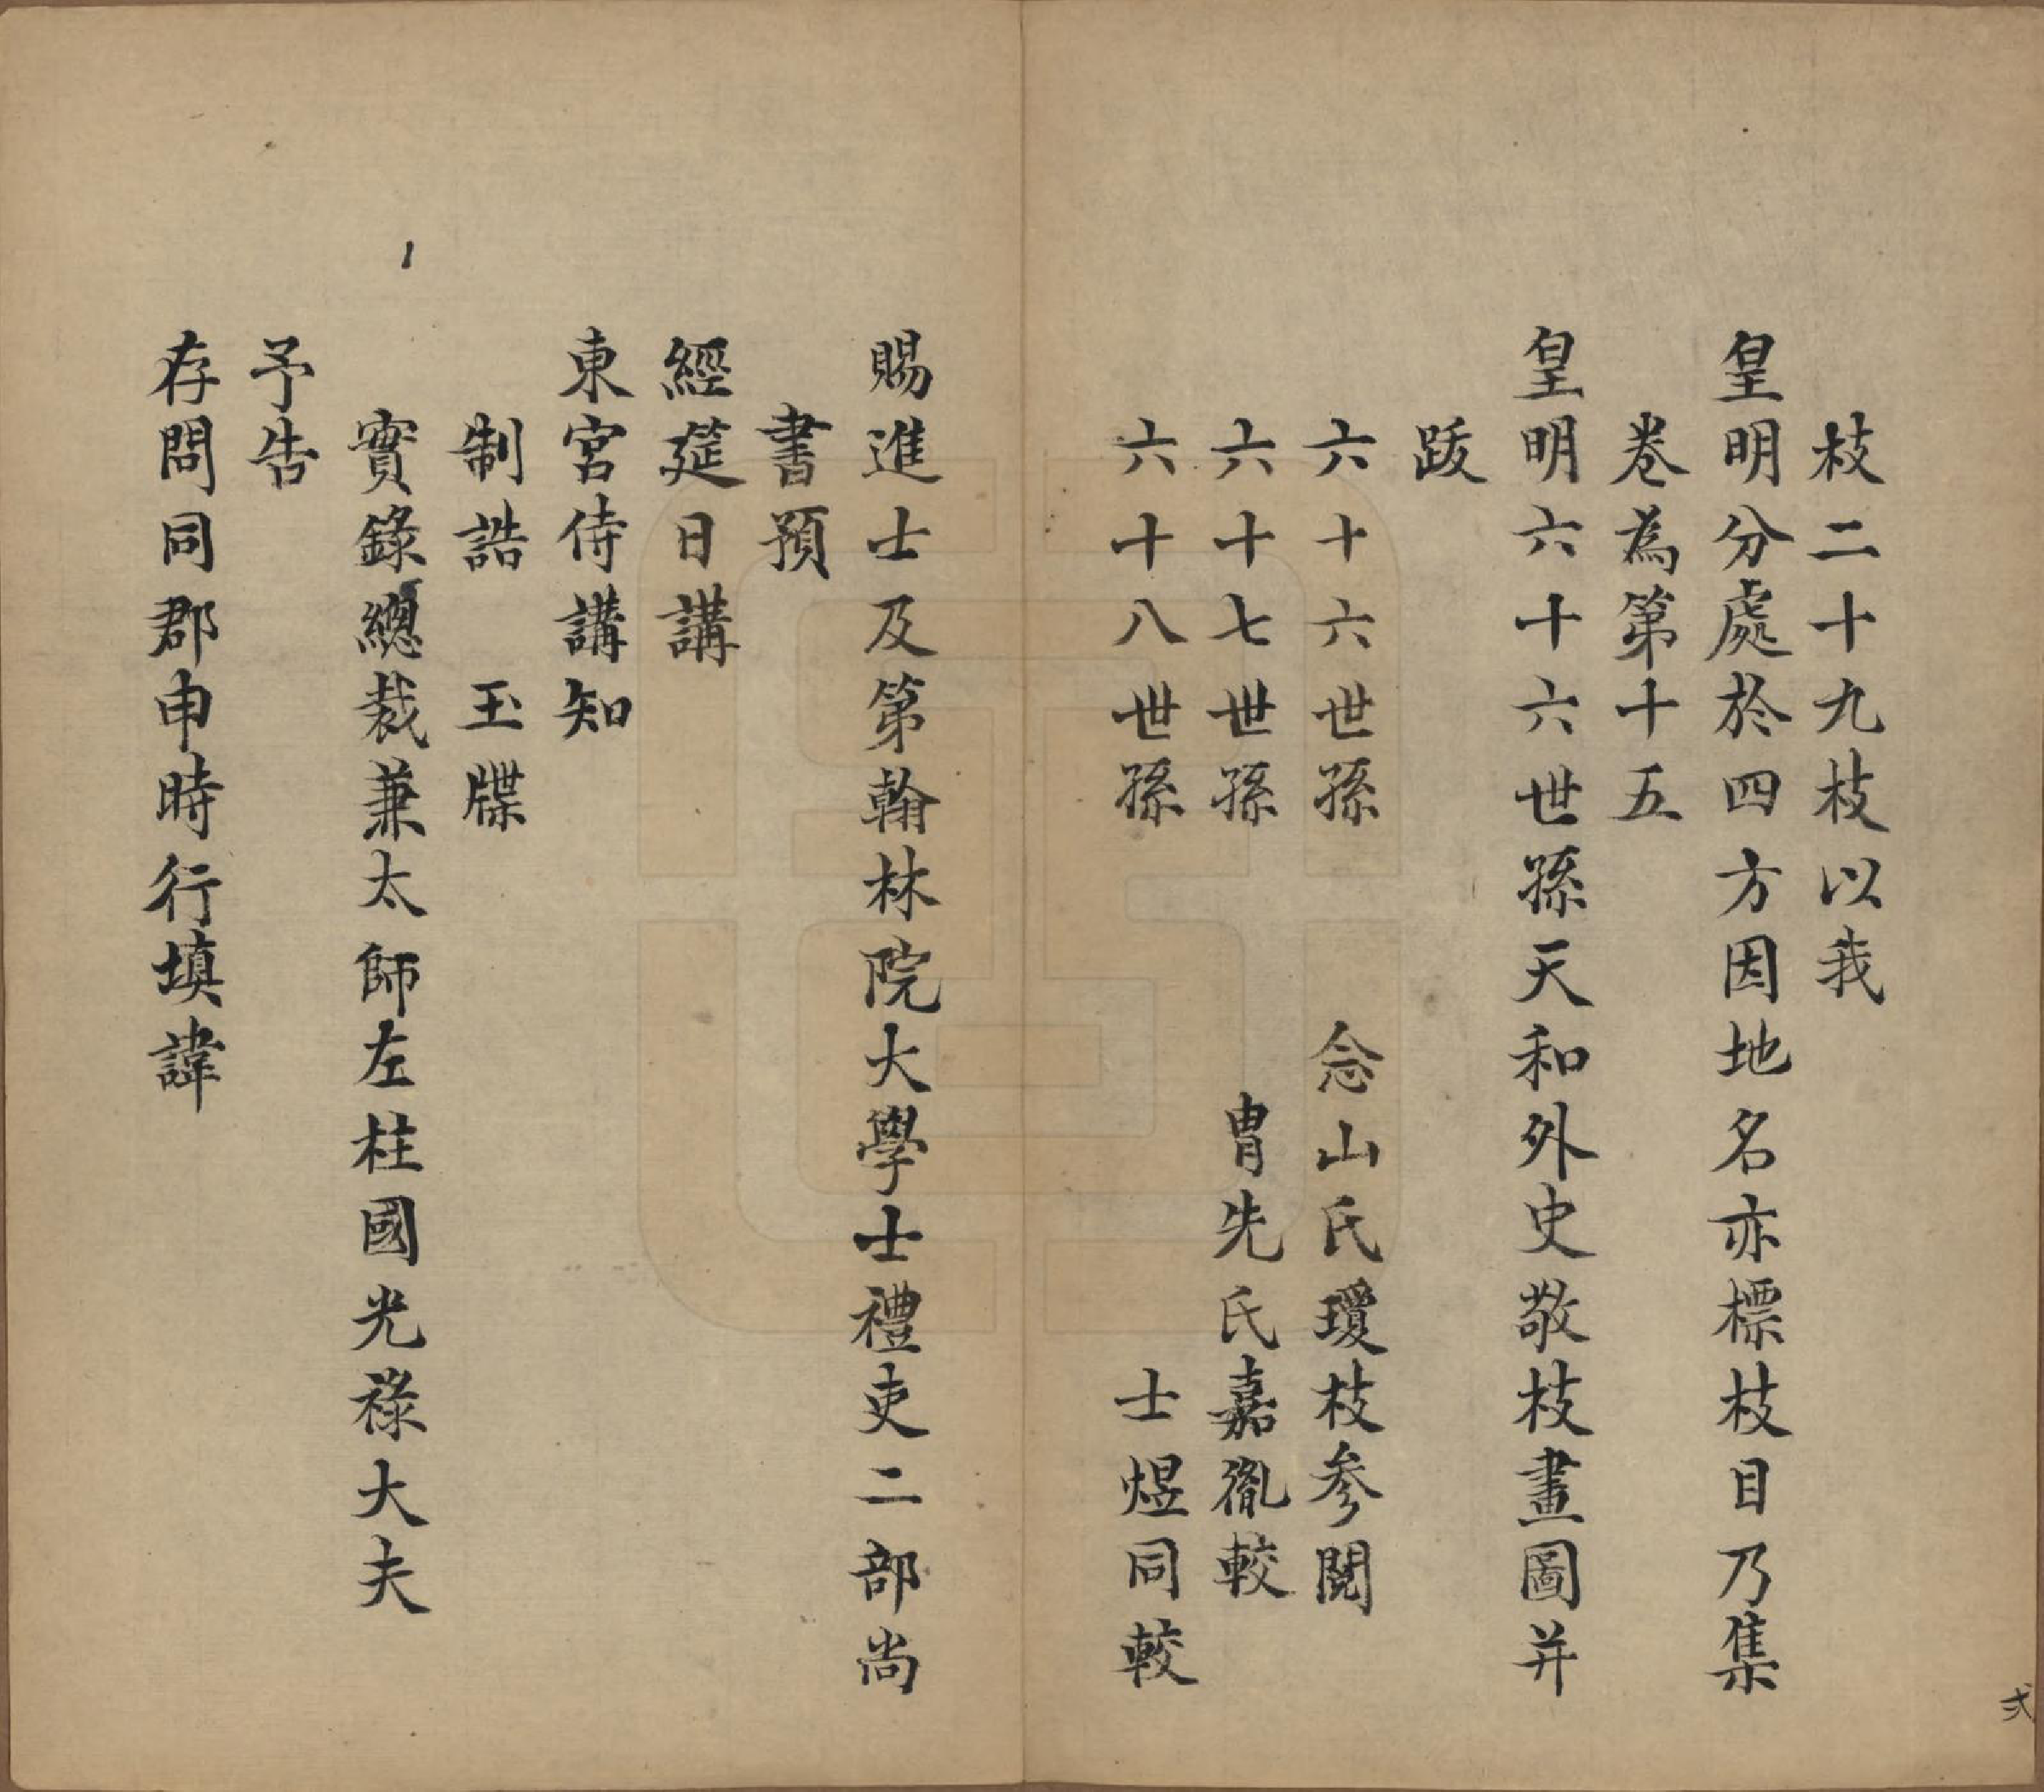 枝二十九枝以我
皇明分處於四方因地名亦標枝目乃集
卷為第十五
皇明六十六世孫天和外史敬枝畫圖并
跋
六十六世孫　念山氏瓊枝参閱
六十七世孫　胄先氏嘉胤較
六十八世孫　士煜同較
賜進士及第翰林院大學士禮吏二部尚
書預
經筵日講
東宮侍講知
制誥　玉牒
實錄總裁兼太師左柱國光祿大夫
予告
存問同郡申時行填諱
弍